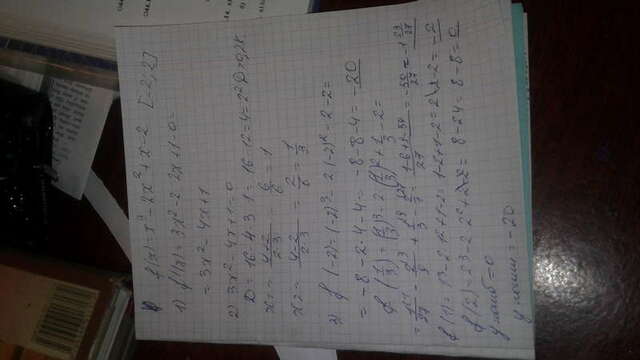 f(x)=x³-2x²+x-2 [-2;2]
1) f'(x)=3x²-2·2x+1-0=
=3x²-4x+1
2) 3x²-4x+1=0
D=16-4·3·1=16-12=4=2² D>0, 2к.
x₁= (4+2)/(2·3) = 6/6 =1
x₂= (4-2)/(2·3) = 2/6 = 1/3
3) f(-2)=(-2)³-2·(-2)²-2-2=
=-8-2·4-4=-8-8-4=-20
f(1/3)=(1/3)³-2(1/3)²+1/3-2=
= 1/27 - 2/9 + 1/3 - 2/1 = (1-6+9-54)/27 = -50/27 = -1 23/27
f(1)=1³-2·1²+1-2=1-2+1-2=-2
f(2)=2³-2·2²+2-2=8-2·4=8-8=0
y наиб=0
y наим=-20